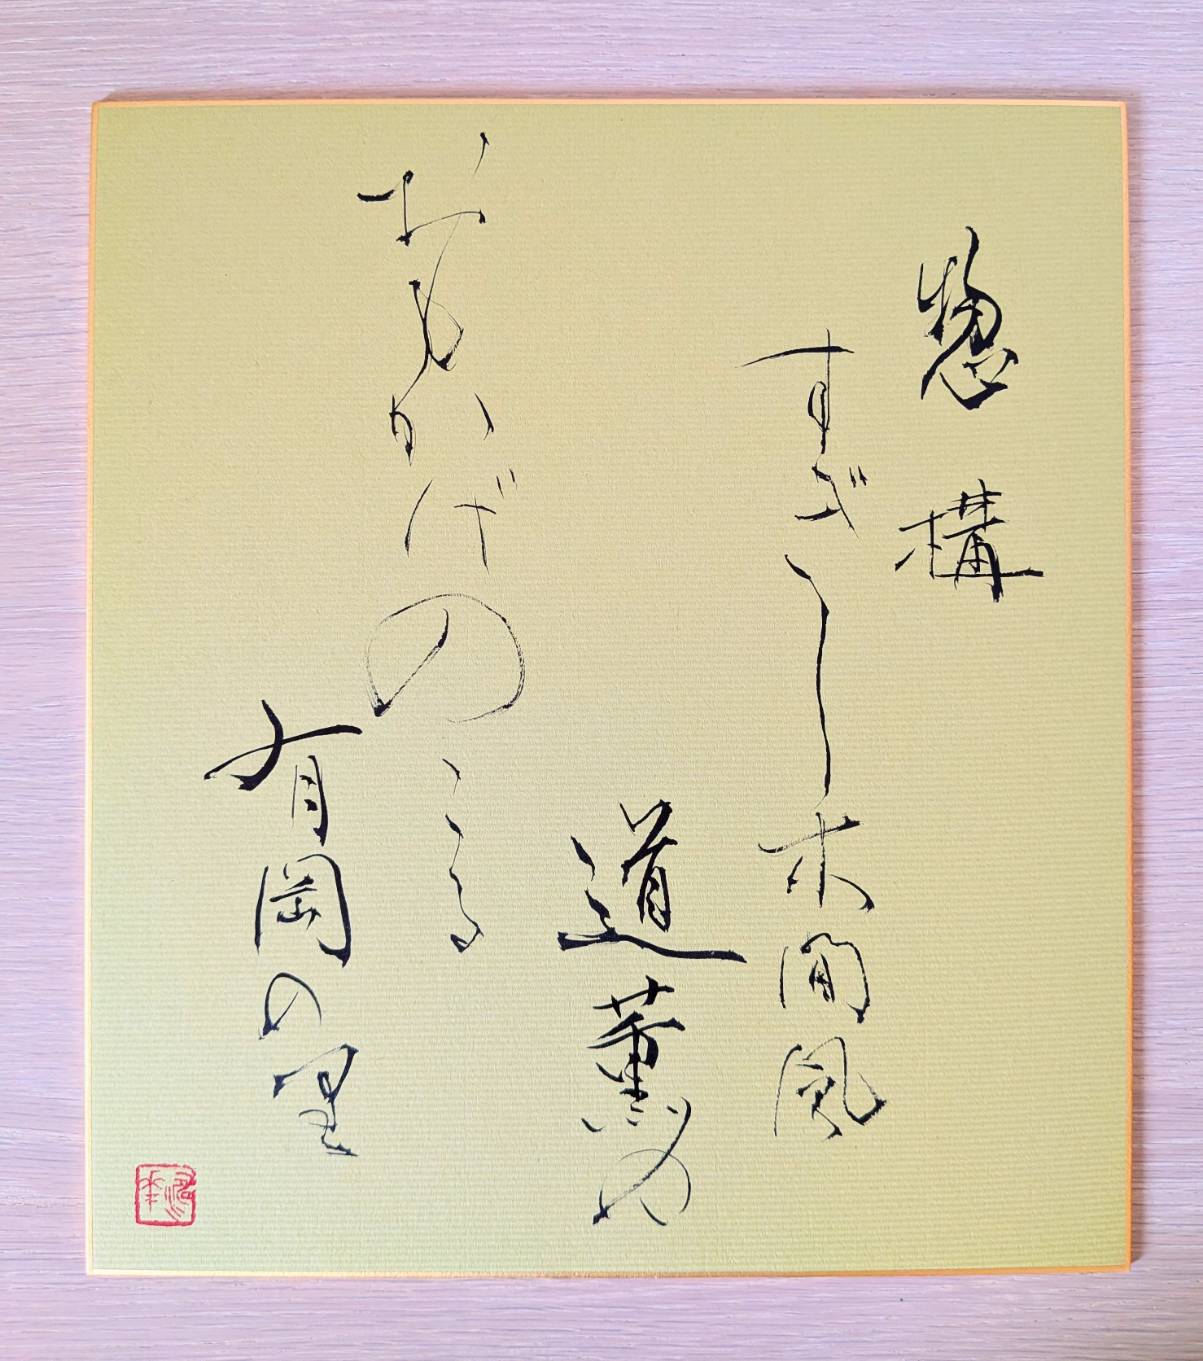 惣構
すぎし木間風
道薫の
おもかげのこる
有岡の里